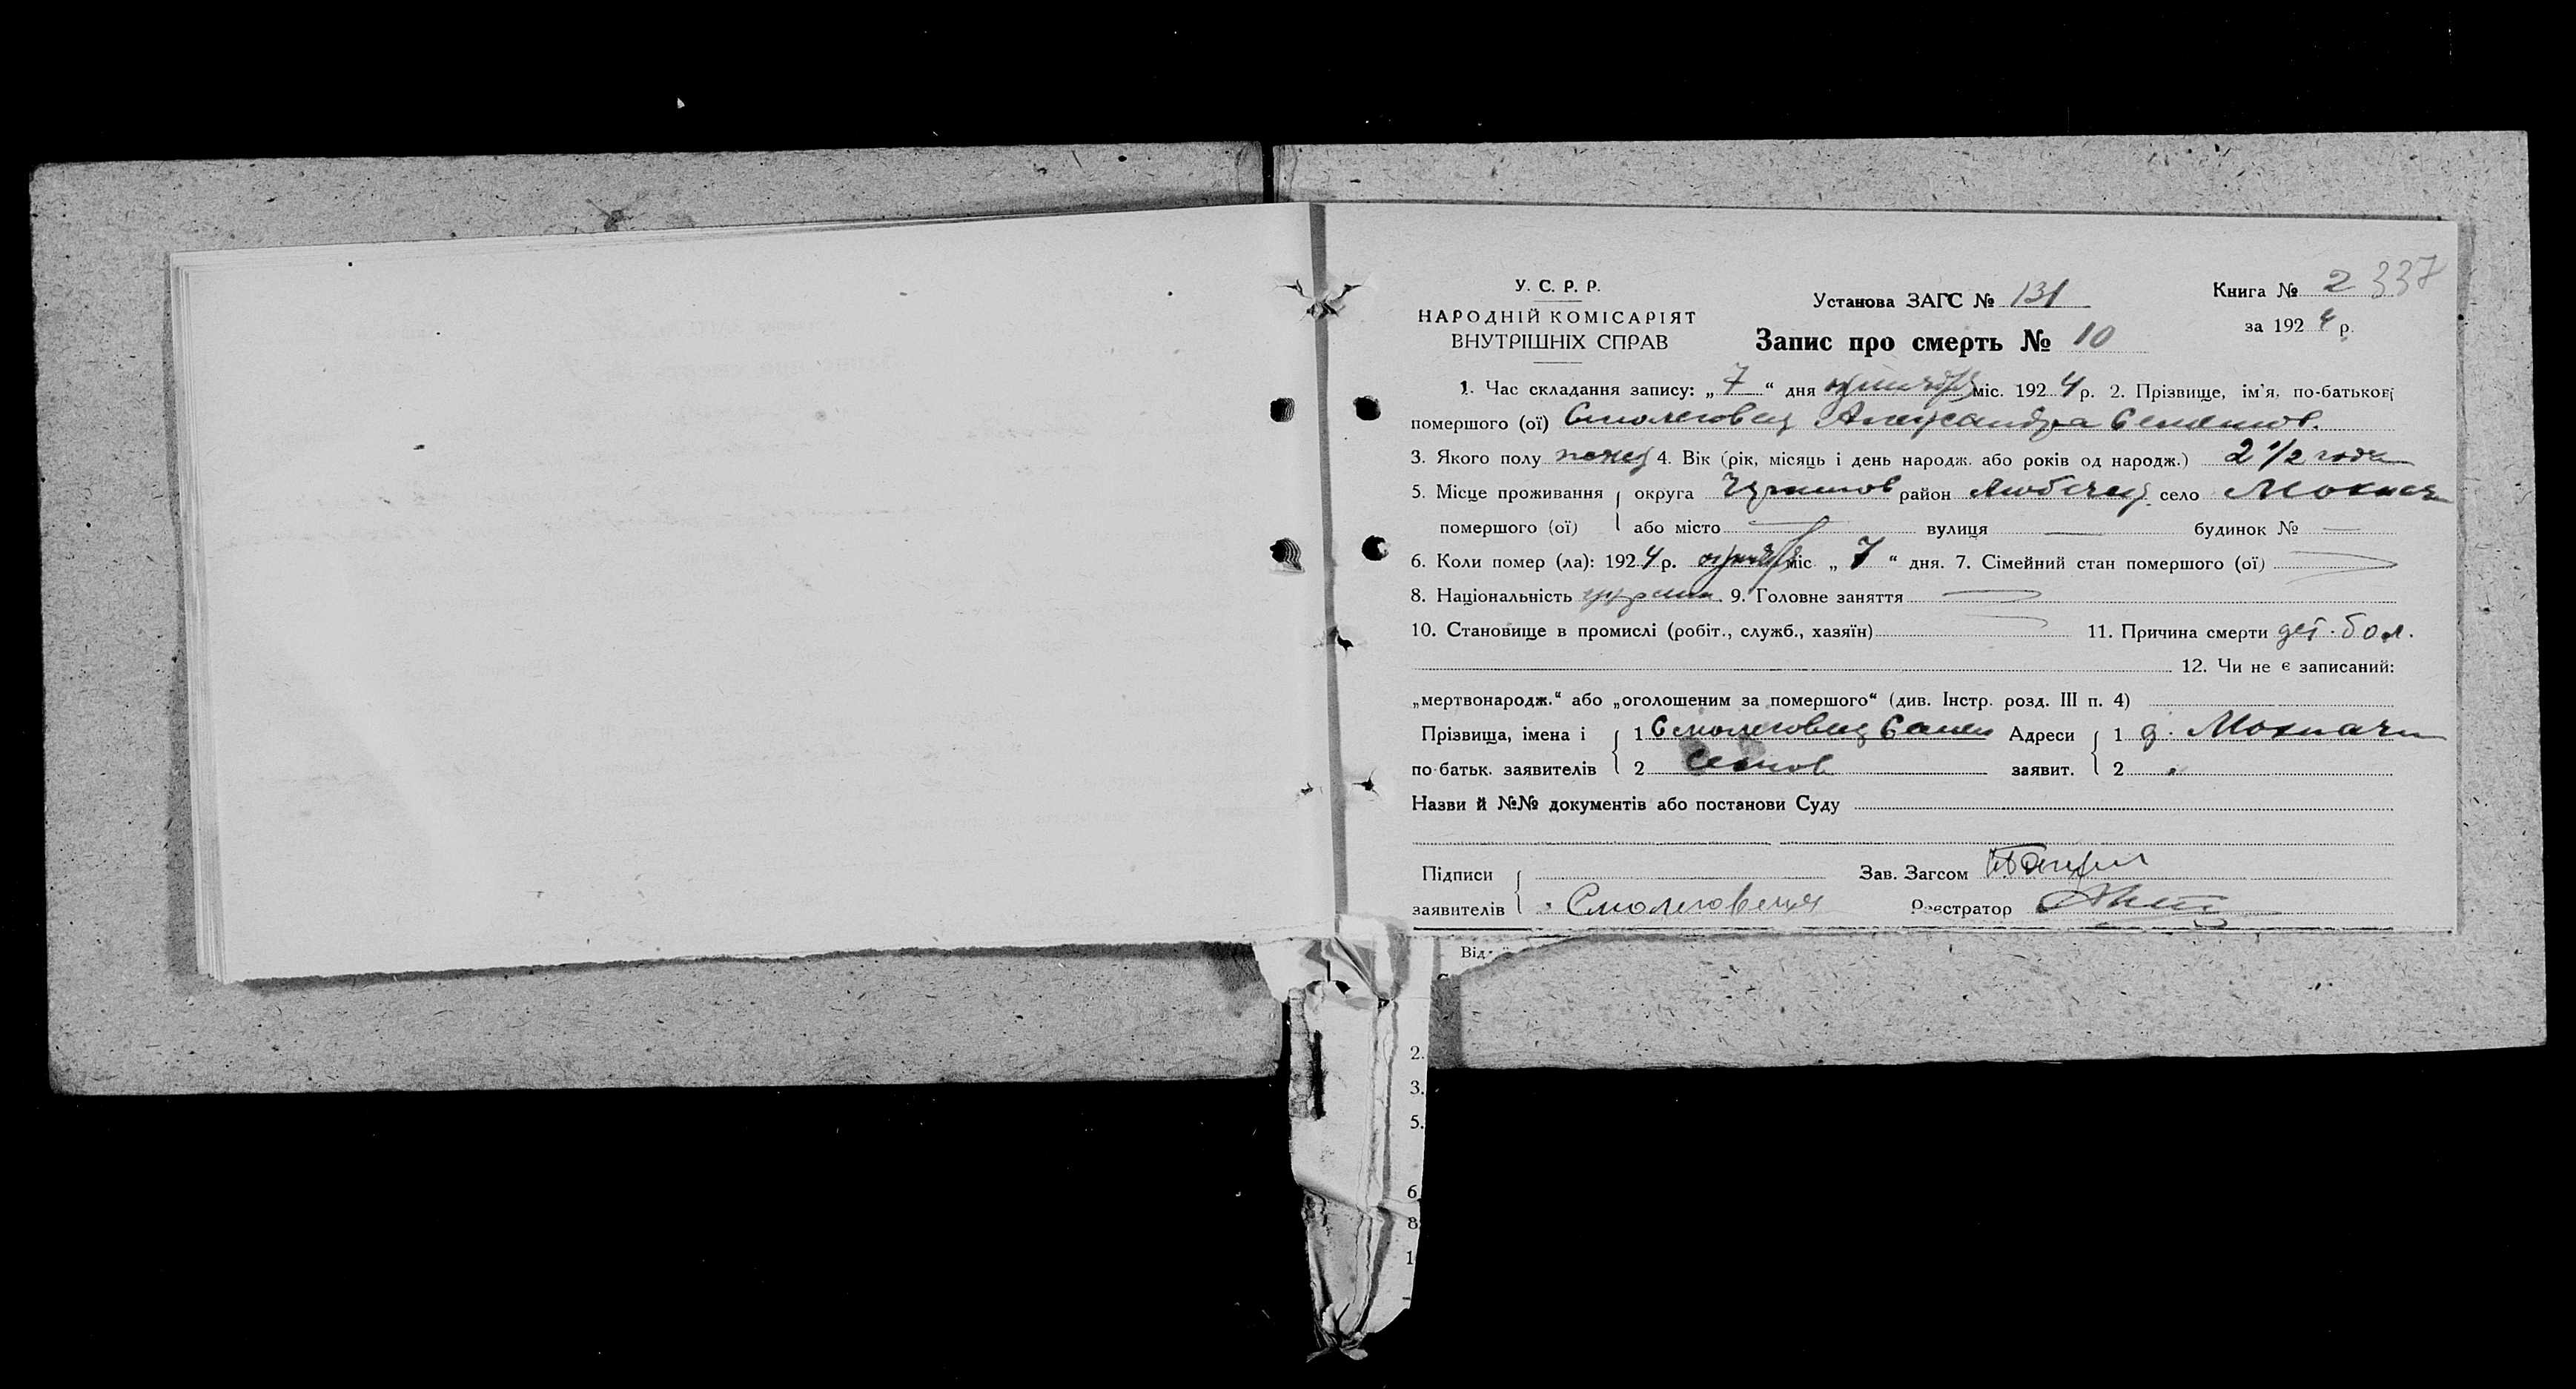 У. С. Р. Р.
НАРОДНІЙ КОМІСАРІЯТ
ВНУТРІШНІХ СПРАВ
Установа ЗАГС № 131
Запис про смерть № 10
Книга № 2 337
за 1924 р.
1. Час складання запису: „7“ дня октября міс. 1924 р. 2. Прізвище, ім'я, по-батькові
помершого (ої) Смолеговец Александра Семенов.
3. Якого полу женск 4. Вік (рік, місяць і день народж. або років од народж.) 2 1/2 года
5. Місце проживання округа Чернигов район Любечск село Мохначи
помершого (ої) або місто вулиця — будинок № —
6. Коли помер (ла): 1924 р. октября міс „7“ дня. 7. Сімейний стан помершого (ої)
8. Національність украин. 9. Головне заняття
10. Становище в промислі (робіт., служб., хазяїн) 11. Причина смерти дет. бол.
12. Чи не є записаний:
„мертвонародж.“ або „оголошеним за помершого“ (див. Інстр. розд. III п. 4)
Прізвища, імена і 1 Смолеговец Семен Адреси 1 д. Мохначи
по-батьк. заявителів 2 заявит. 2
Назви й №№ документів або постанови Суду
Підписи Зав. Загсом
заявителів Смолеговец Реєстратор
Від
2.
3.
5.
6
8
1